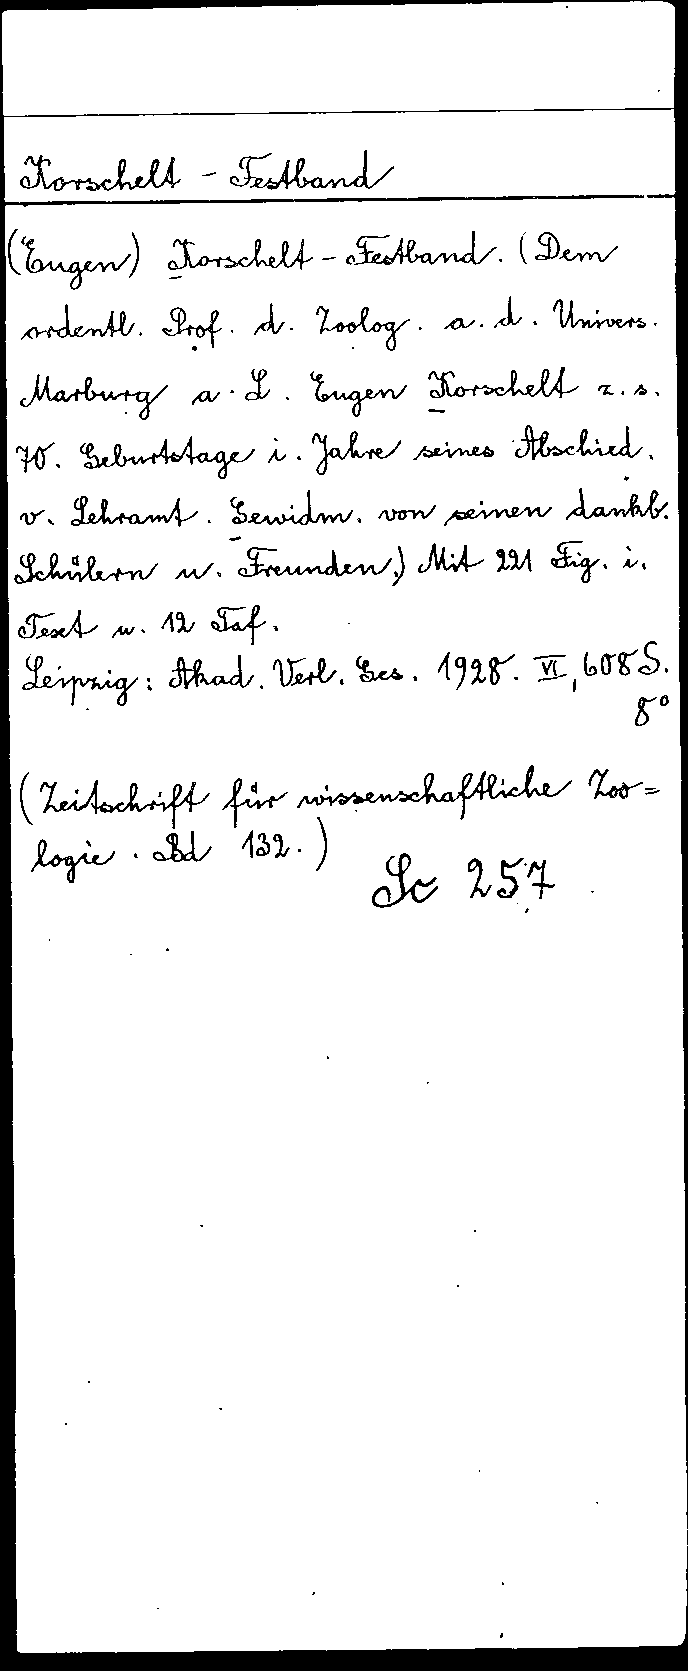 Korschelt - Festband
(Eugen) Korschelt - Festband. (Dem
ordentl. Prof. d. Zoolog. a. d. Univers.
Marburg a. L. Eugen Korschelt z. s.
70. Geburtstage i. Jahre seines Abschied.
v. Lehramt. Gewidm. von seinen dankb.
Schülern u. Freunden.) Mit 221 Fig. i.
Text u. 12 Taf.
Leipzig: Akad. Verl. Ges. 1928. VI, 608 S.
8°
(Zeitschrift für wissenschaftliche Zoo=
logie. Bd 132.)
Sc 257